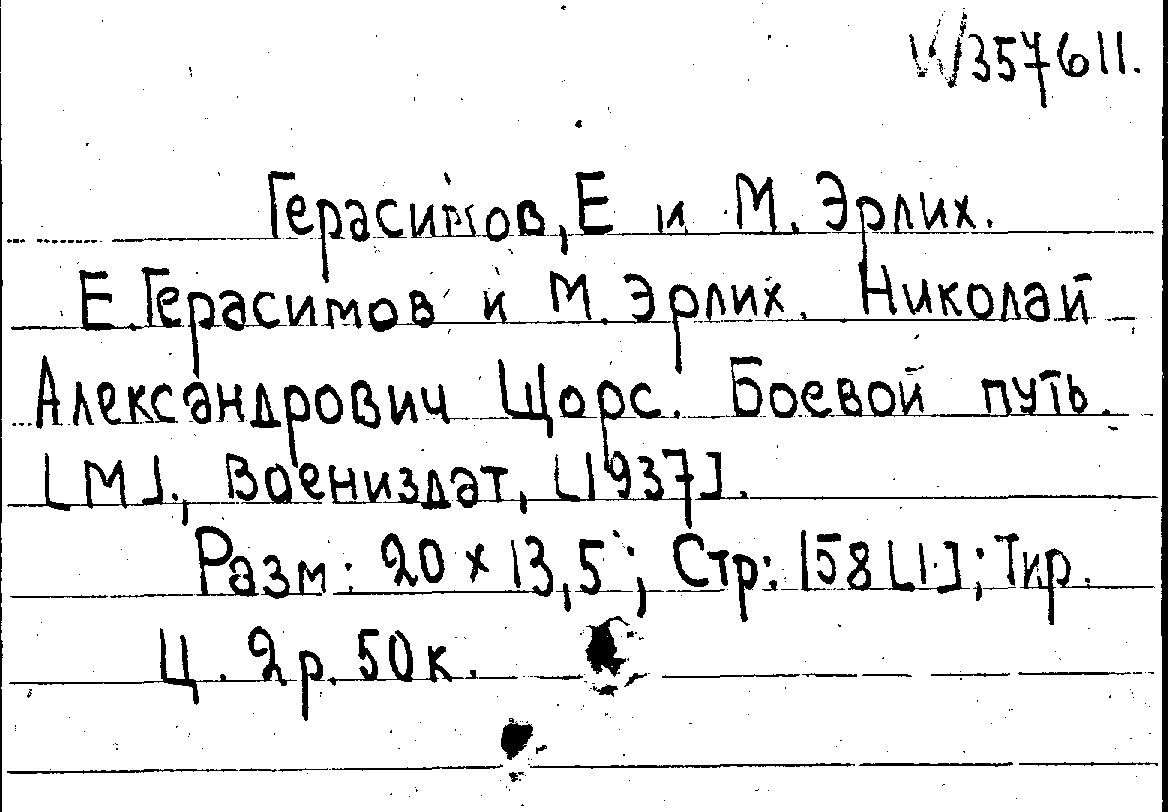 W357611.
Герасимов, Е и М. Эрлих.
Е. Герасимов и М. Эрлих. Николай
Александрович Щорс. Боевой путь.
[М]., Воениздат, [1937].
Разм: 20 х 13,5; Стр: 158 [1.]; Тир.
Ц. 2р. 50к.